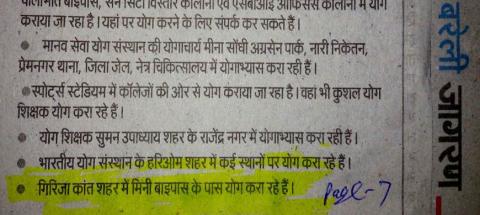 पीलीभीत बाइपास, सन सिटी विस्तार कालोनी एवं एसबीआइ आफिसर्स कालोनी में योग
कराया जा रहा है। यहां पर योग करने के लिए संपर्क कर सकते हैं।
● मानव सेवा योग संस्थान की योगाचार्य मीना सोंधी अग्रसेन पार्क, नारी निकेतन,
प्रेमनगर थाना, जिला जेल, नेत्र चिकित्सालय में योगाभ्यास करा रही हैं।
● स्पोर्ट्स स्टेडियम में कॉलेजों की ओर से योग कराया जा रहा है। वहां भी कुशल योग
शिक्षक योग करा रहे हैं।
● योग शिक्षक सुमन उपाध्याय शहर के राजेंद्र नगर में योगाभ्यास करा रही हैं।
● भारतीय योग संस्थान के हरिओम शहर में कई स्थानों पर योग करा रहे हैं।
● गिरिजा कांत शहर में मिनी बाइपास के पास योग करा रहे हैं।
Page-7
बरेली जागरण